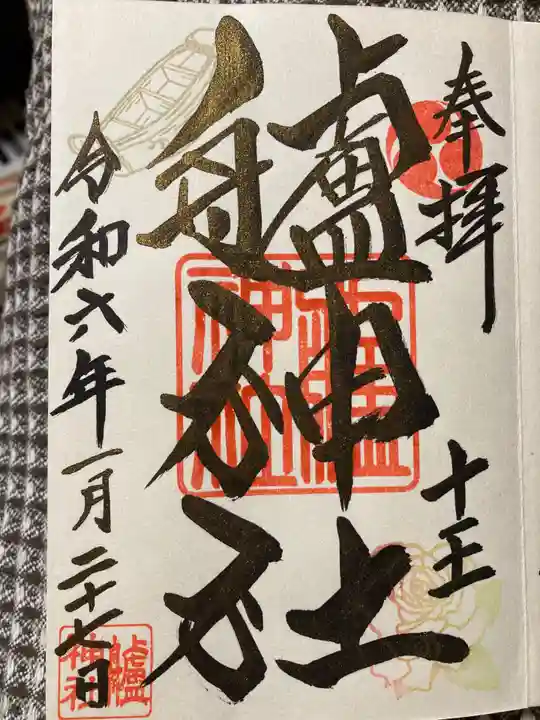 奉拝
十王
艫神社
令和六年一月二十七日
艫神社